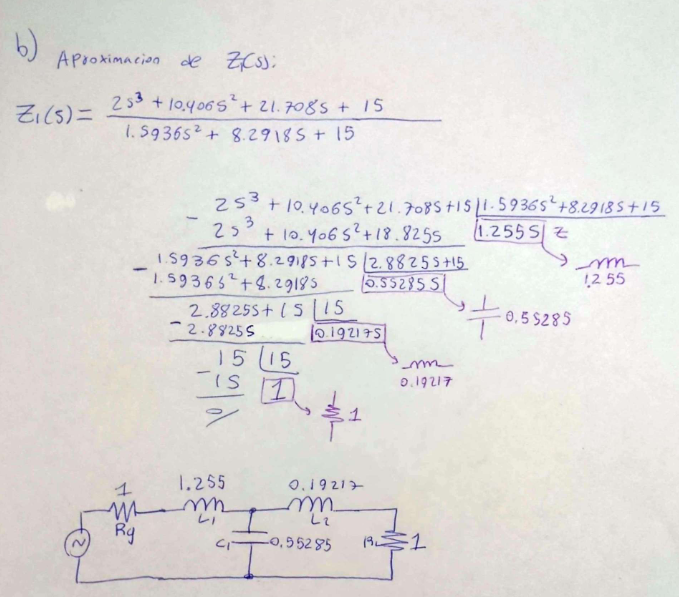 b) Aproximacion de Z₁(s):
Z₁(s) = 2s³ + 10.406s² + 21.708s + 15
1.5936s² + 8.2918s + 15
- 2s³ + 10.406s² + 21.708s + 15 | 1.5936s² + 8.2918s + 15
2s³ + 10.406s² + 18.825s 1.255s Z
- 1.5936s² + 8.2918s + 15 | 2.8825s + 15 1.255
1.5936s² + 8.2918s 0.55285s
2.8825s + 15 | 15 0.55285
- 2.8825s 0.19217s
15 | 15 0.19217
- 15 1
0 1
1 1.255 0.19217
Rg L1 L2
~ C1 0.55285 RL 1